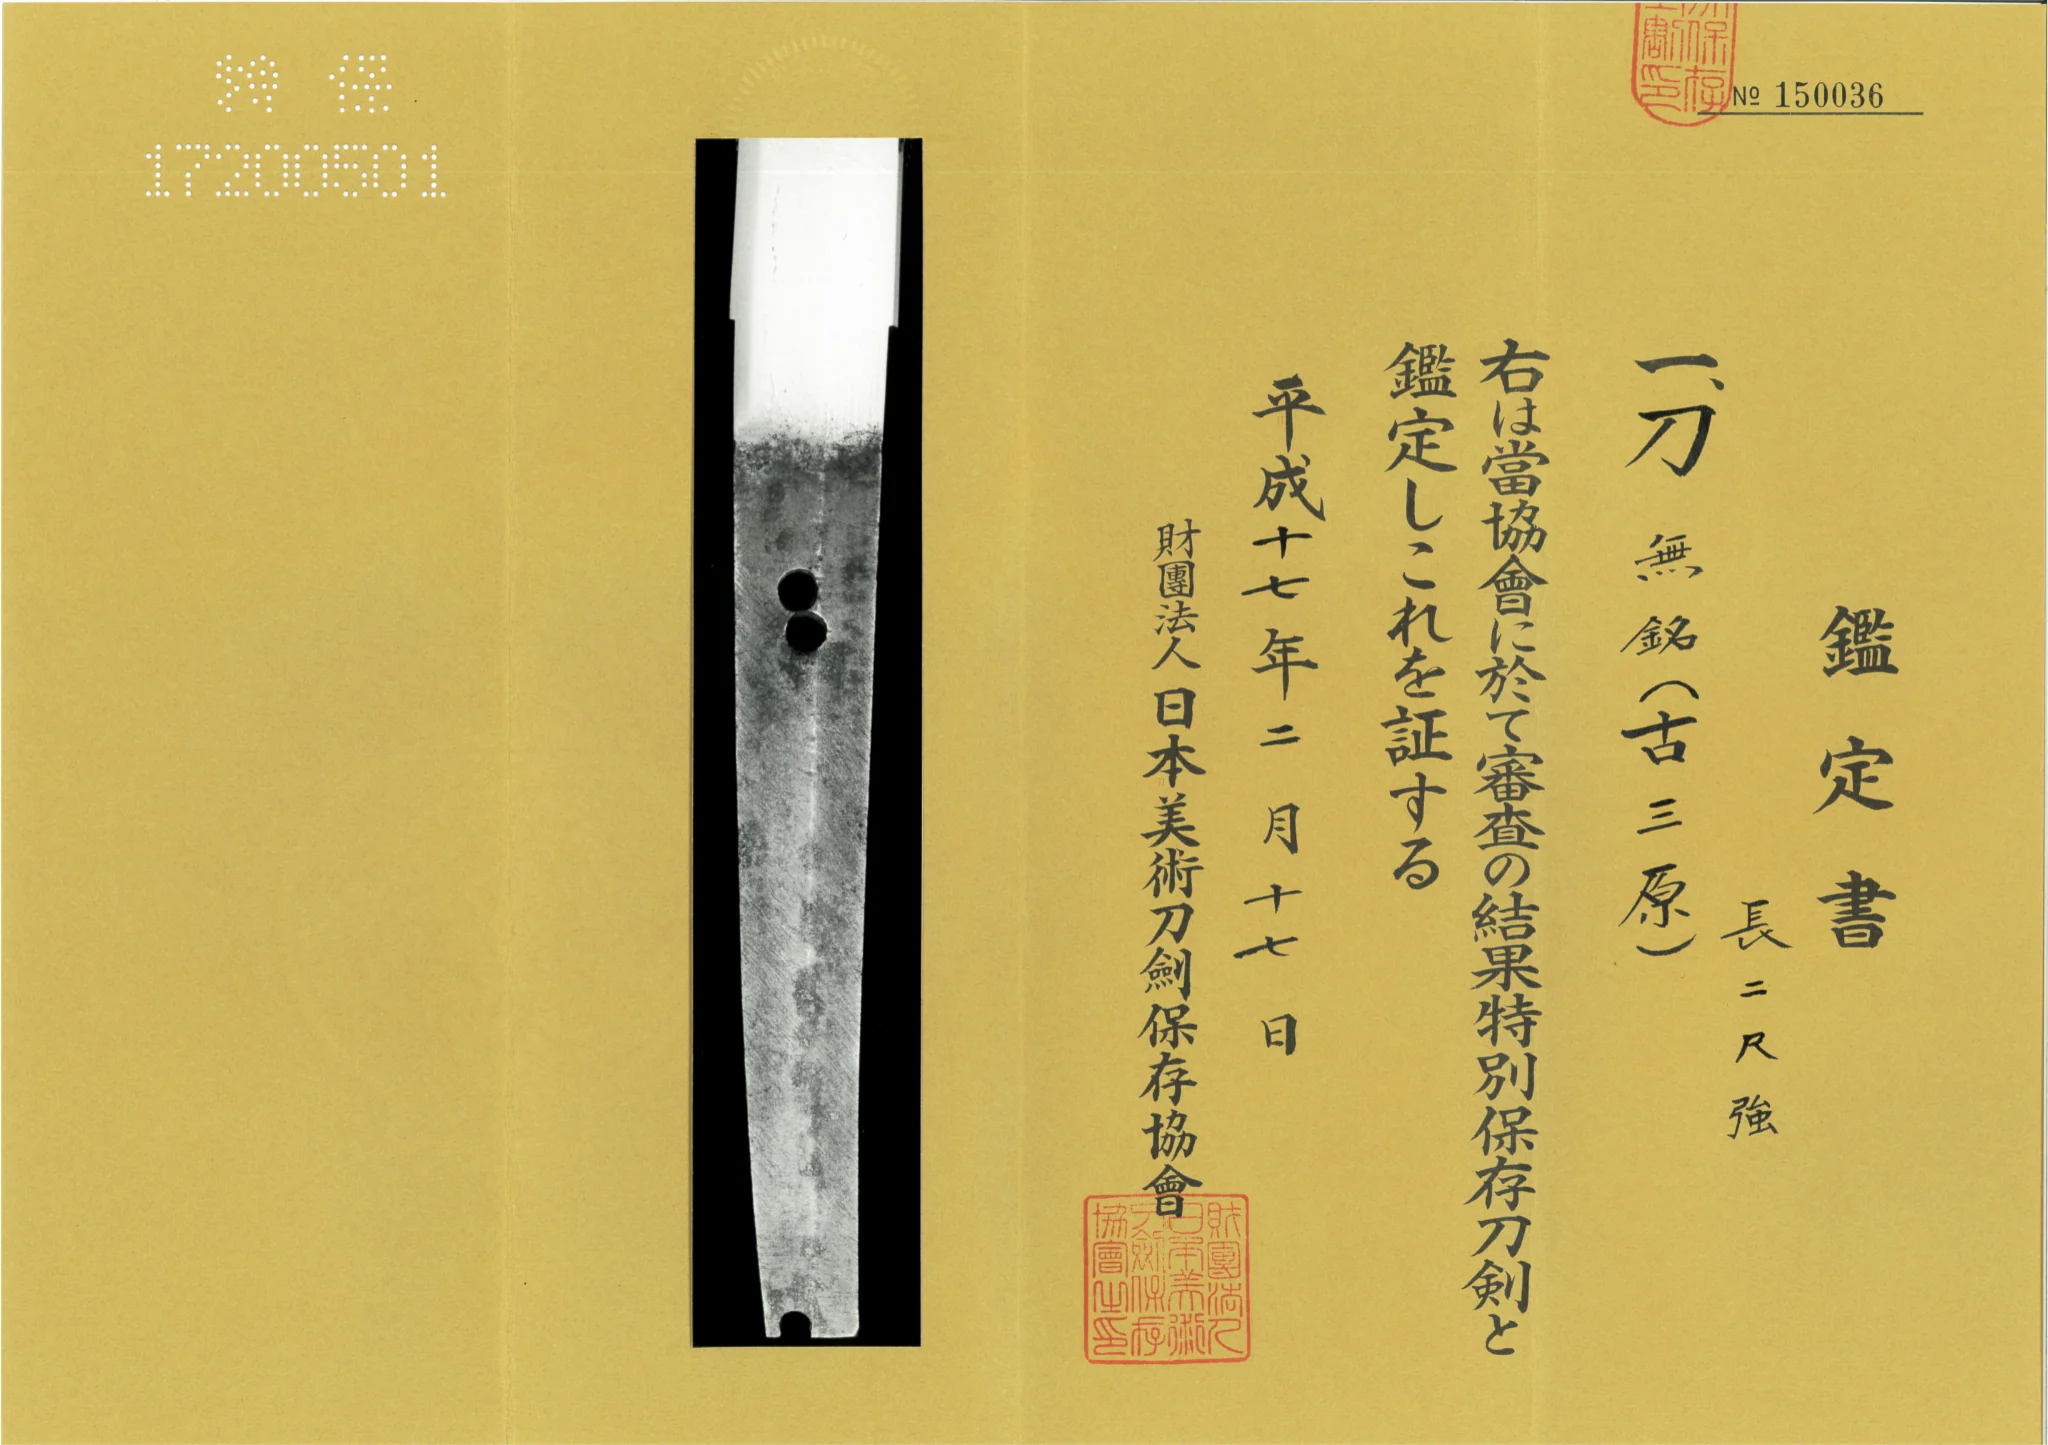 № 150036
鑑定書
長二尺強
一、刀 無銘(古三原)
右は當協會に於て審査の結果特別保存刀剣と
鑑定しこれを証する
平成十七年二月十七日
財團法人日本美術刀劍保存協會
財團法人
日本美術
刀劍保存
協會之印
特保
17200501